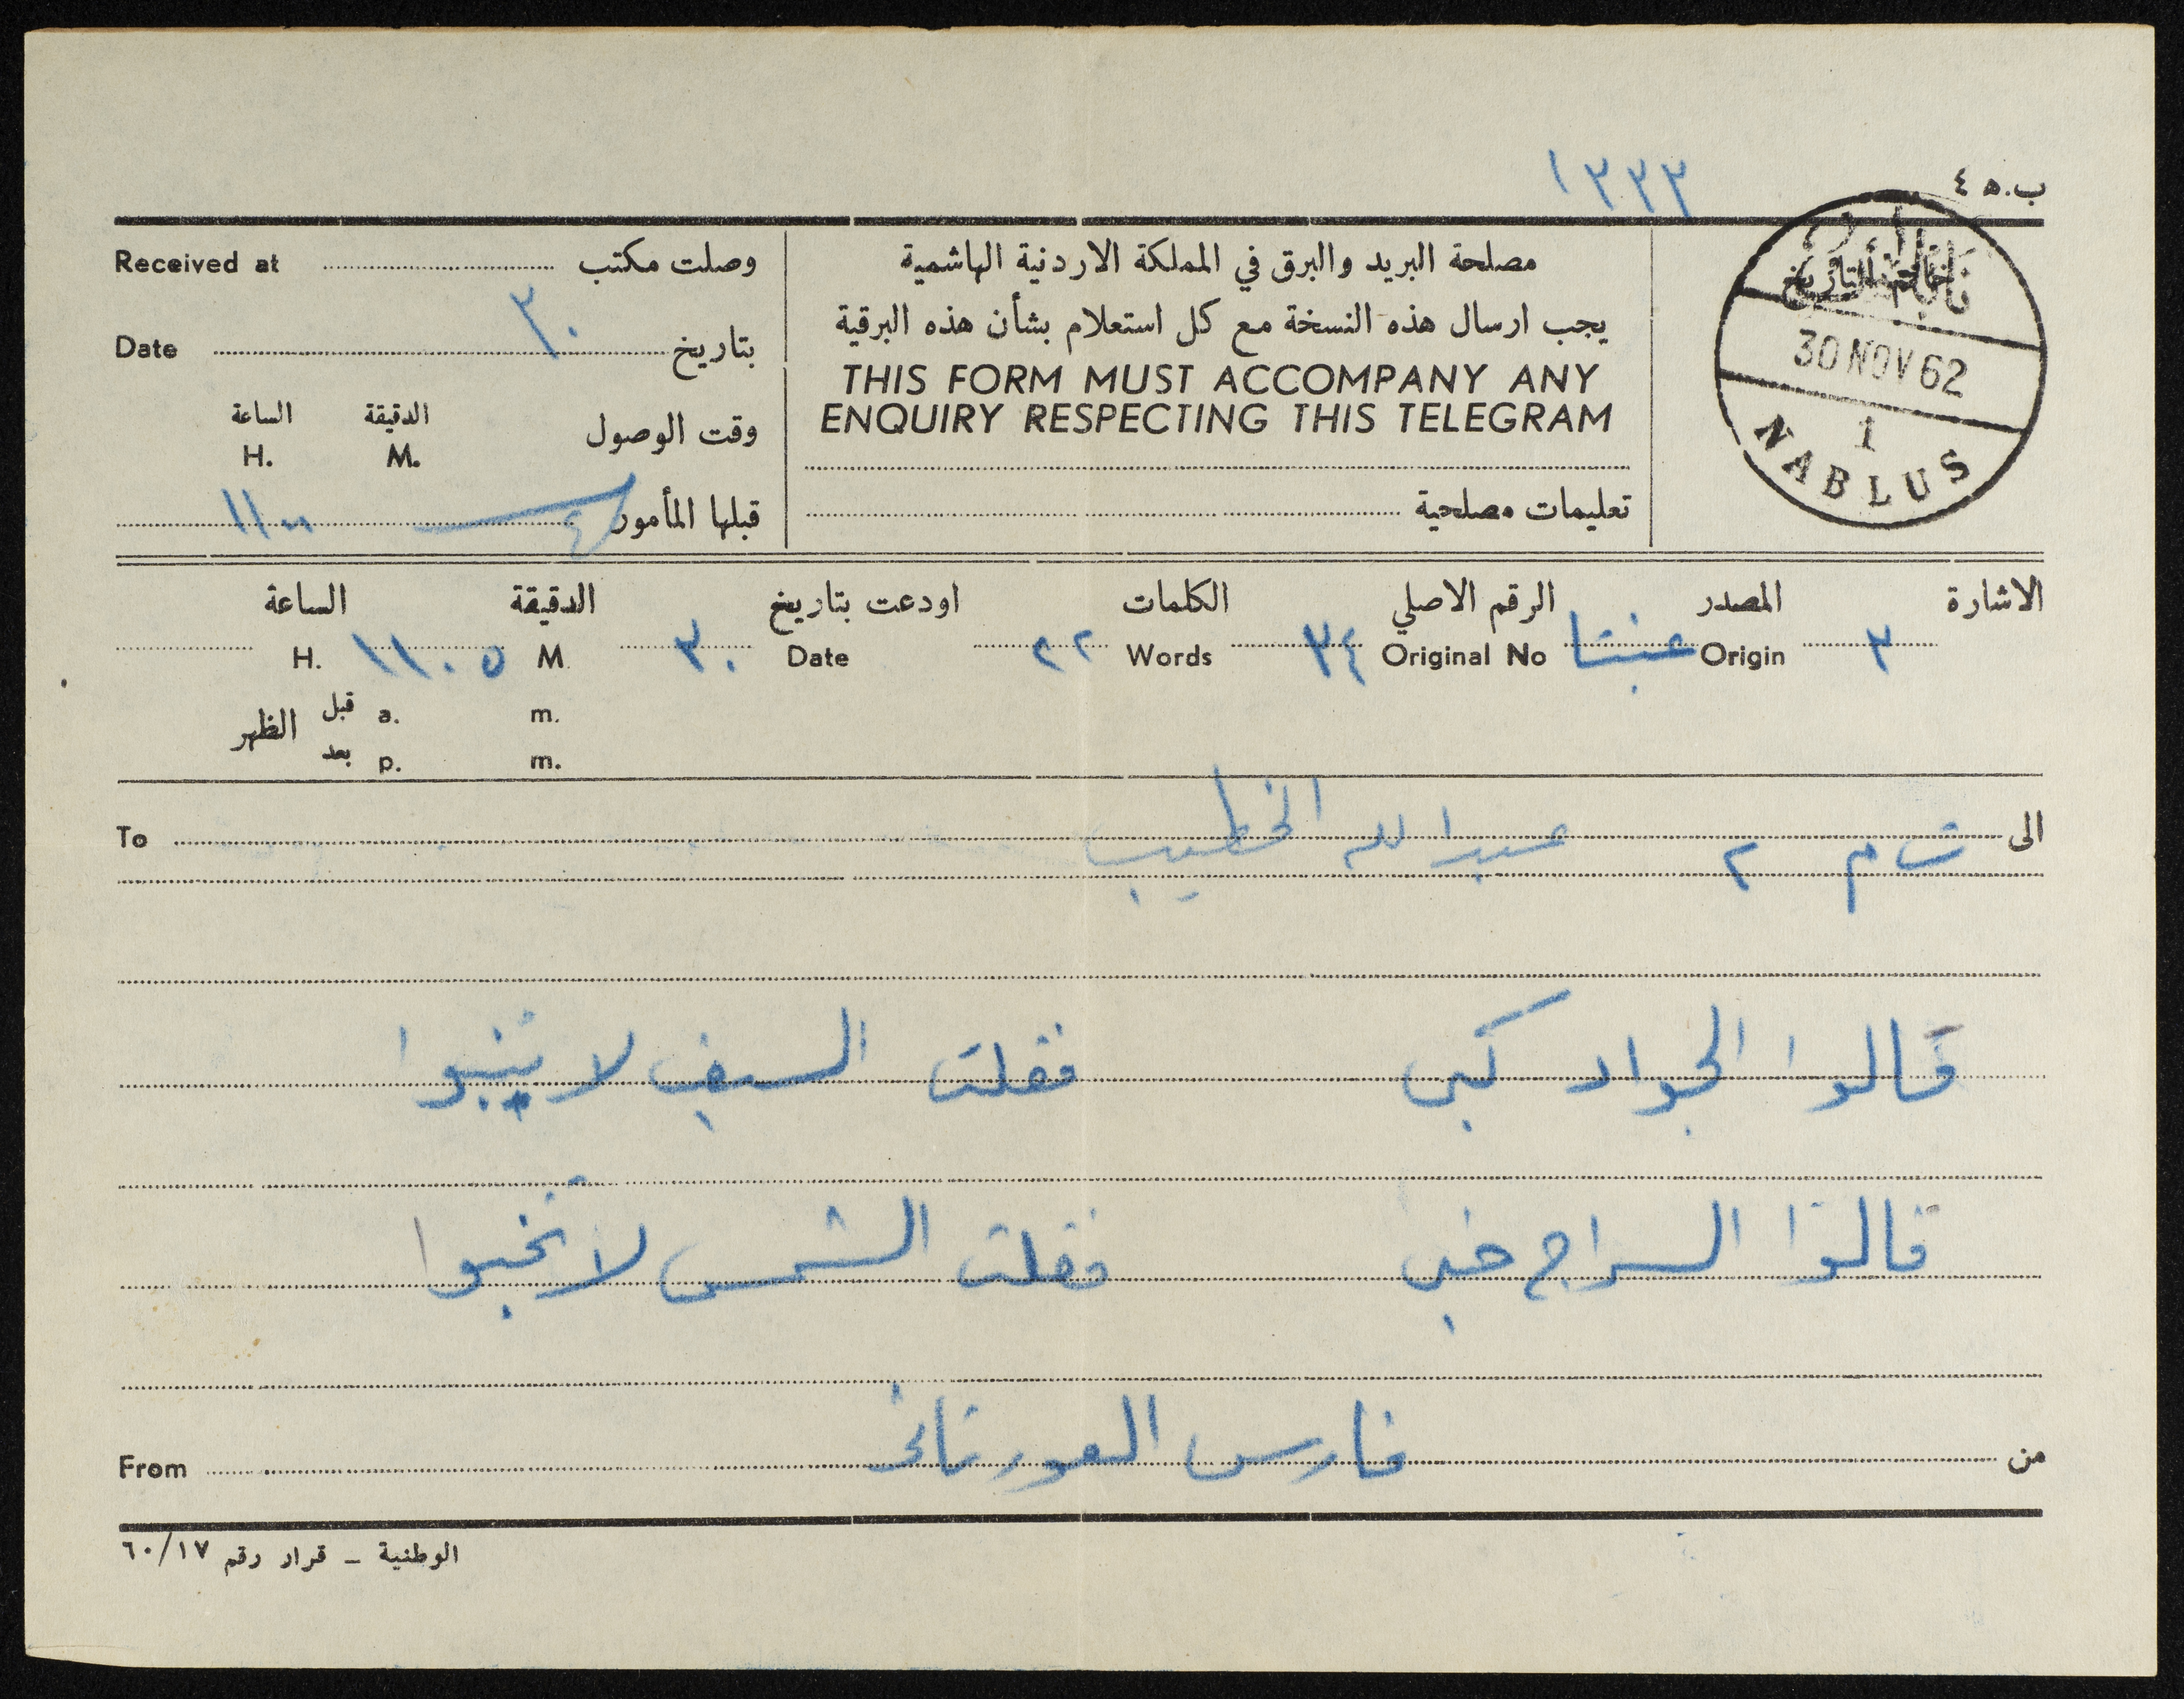 ١٣٣٣
ب.ه ٤
مصلحة البريد والبرق في المملكة الاردنية الهاشمية
يجب ارسال هذه النسخة مع كل استعلام بشأن هذه البرقية
THIS FORM MUST ACCOMPANY ANY
ENQUIRY RESPECTING THIS TELEGRAM
تعليمات مصلحية
خاتم التاريخ
30 NOV 62
1
NABLUS
وصلت مكتب Received at
بتاريخ ٣٠ Date
وقت الوصول الدقيقة الساعة
M. H.
قبلها المأمور ١١٠٠
الاشارة المصدر الرقم الاصلي الكلمات اودعت بتاريخ الدقيقة الساعة
٣ Origin عنبتا Original No ٣٤ Words ٢٢ Date ٣٠ M ١١٠٥ H.
قبل a. m.
الظهر
بعد p. m.
الى ت م ٢ عبد الله الخطيب To
قالوا الجواد كبى فقلت السيف لا ينبوا
قالوا السراج خبى فقلت الشمس لا تخبوا
من فارس العورتاني From
الوطنية – قرار رقم ٦٠/١٧